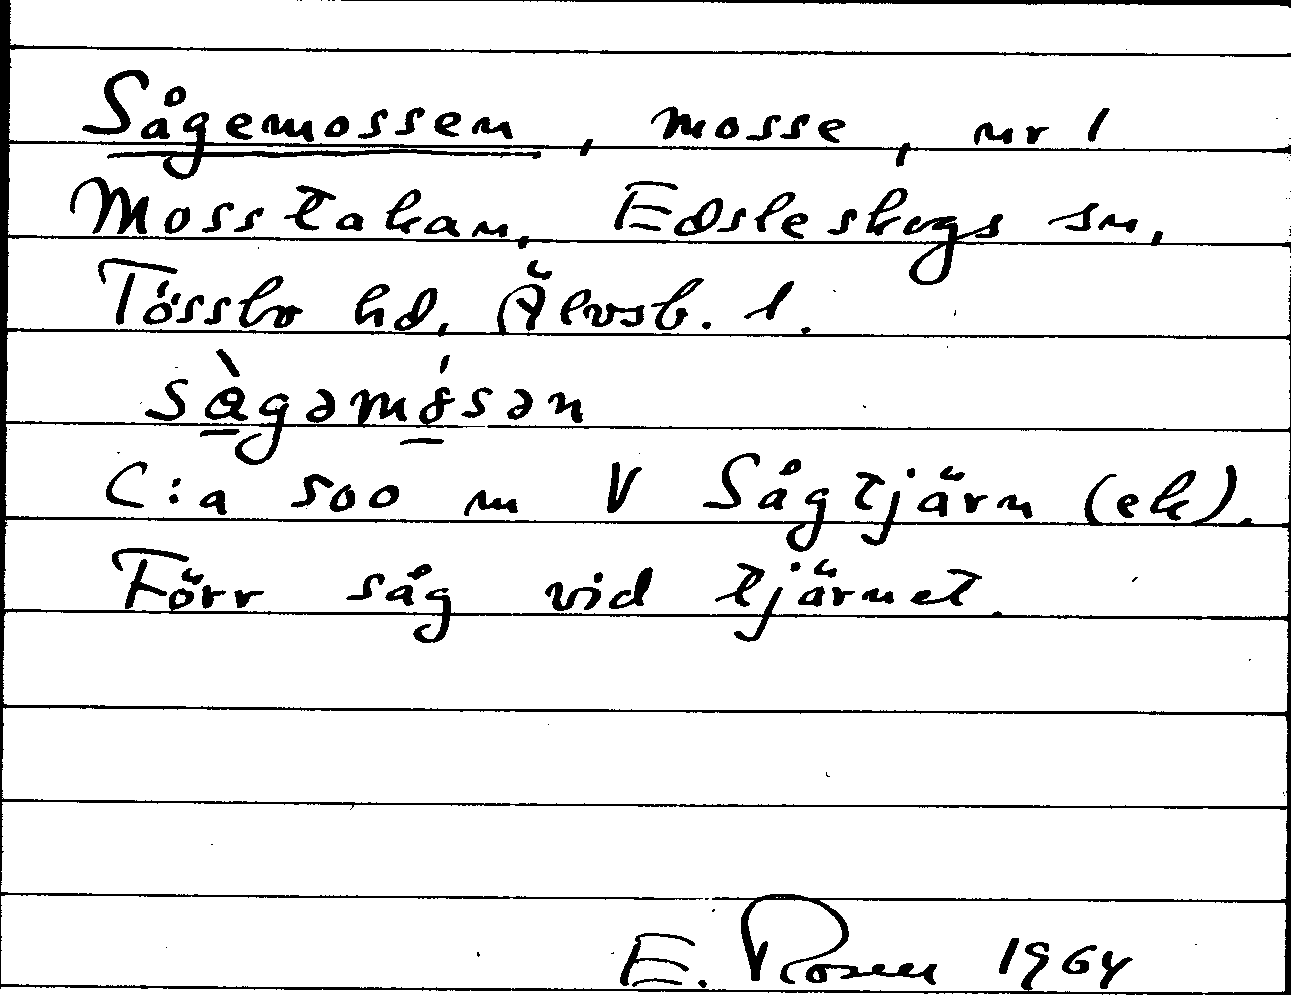 Sågemossen, mosse, nr 1
Mosstakan, Edsleskogs sn,
Tössbo hd, Älvsb. l.
sàgəmósən
C:a 500 m V Sågtjärn (ek).
Förr såg vid tjärnet.
E. Rosen 1964